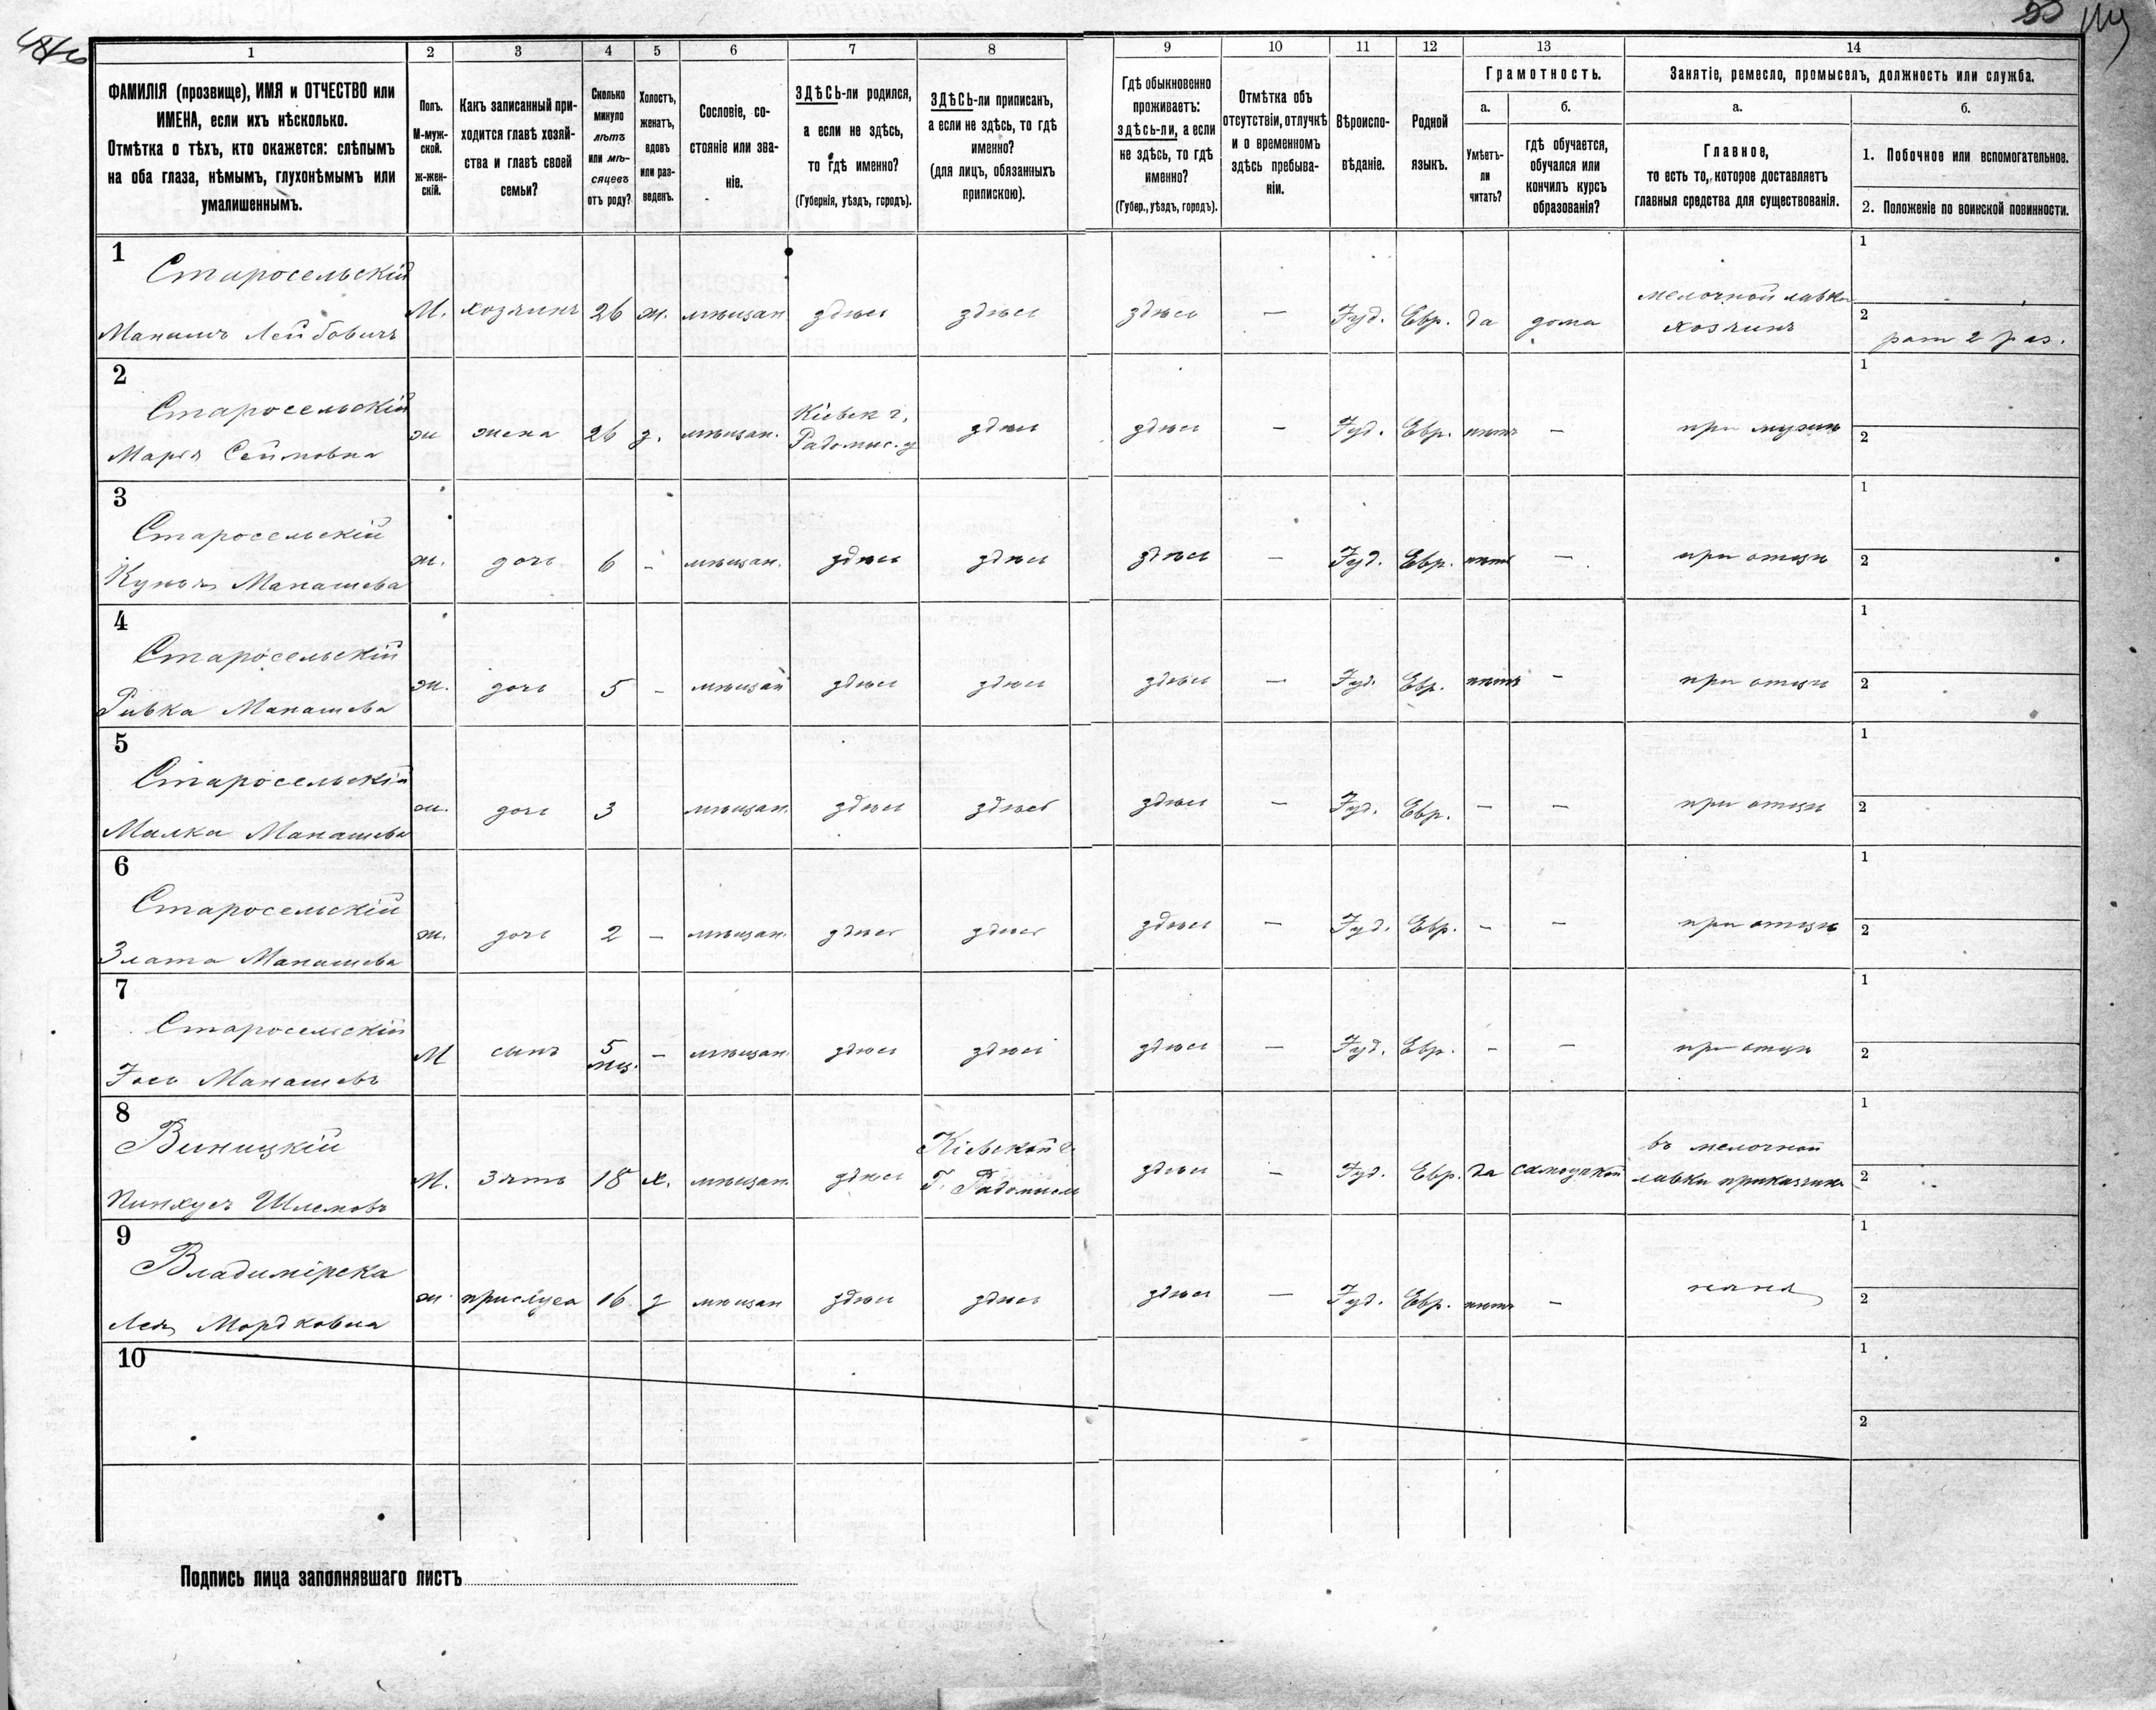 1 2 3 4 5 6 7 8 9 10 11 12 13 14
ФАМИЛІЯ (прозвище), ИМЯ и ОТЧЕСТВО или
ИМЕНА, если ихъ нѣсколько.
Отмѣтка о тѣхъ, кто окажется: слѣпымъ
на оба глаза, нѣмымъ, глухонѣмымъ или
умалишеннымъ.
Полъ.
М-муж-
ской.
ж-жен-
скій.
Какъ записанный при-
ходится главѣ хозяй-
ства и главѣ своей
семьи?
Сколько
минуло
лѣтъ
или мѣ-
сяцевъ
отъ роду?
Холостъ,
женатъ,
вдовъ
или раз-
веденъ.
Сословіе, со-
стояніе или зва-
ніе.
ЗДѢСЬ-ли родился,
а если не здѣсь,
то гдѣ именно?
(Губернія, уѣздъ, городъ).
ЗДѢСЬ-ли приписанъ,
а если не здѣсь, то гдѣ
именно?
(для лицъ, обязанныхъ
припискою).
Гдѣ обыкновенно
проживаетъ:
здѣсь-ли, а если
не здѣсь, то гдѣ
именно?
(Губер., уѣздъ, городъ).
Отмѣтка объ
отсутствіи, отлучкѣ
и о временномъ
здѣсь пребыва-
ніи.
Вѣроиспо-
вѣданіе.
Родной
языкъ.
Грамотность.
а.
Умѣетъ-
ли
читать?
б.
гдѣ обучается,
обучался или
кончилъ курсъ
образованія?
Занятіе, ремесло, промыселъ, должность или служба.
а.
Главное,
то есть то, которое доставляетъ
главныя средства для существованія.
б.
1. Побочное или вспомогательное.
2. Положеніе по воинской повинности.
1
Старосельскій
Манашъ Лейбовичъ
М. хозяинъ 26 ж. мѣщан здѣсь здѣсь здѣсь — Іуд. Евр. да дома
мелочной лавки
хозяинъ
1
2
рат 2 раз.
2
Старосельскій
Марья Сеймовна
ж жена 26 з. мѣщан.
Кіевск г.
Радомыс. у
здѣсь здѣсь — Іуд. Евр. нѣтъ — при мужѣ
1
2
3
Старосельскій
Манашева
ж. дочь 6 - мѣщан. здѣсь здѣсь здѣсь — Іуд. Евр. нѣтъ — при отцѣ
1
2
4
Старосельскій
Ривка Манашева
ж. дочь 5 - мѣщан здѣсь здѣсь здѣсь — Іуд. Евр. нѣтъ — при отцѣ
1
2
5
Старосельскій
Малка Манашева
ж. дочь 3 мѣщан. здѣсь здѣсь здѣсь — Іуд. Евр. — — при отцѣ
1
2
6
Старосельскій
Злата Манашева
ж. дочь 2 — мѣщан. здѣсь здѣсь здѣсь — Іуд. Евр. - — при отцѣ
1
2
7
Старосельскій
Іось Манашевъ
М сынъ 5 мц. — мѣщан. здѣсь здѣсь здѣсь — Іуд. Евр. - — при отцѣ
1
2
8
Виницкій
Пинхусъ Шлемовъ
М. Зять 18 х. мѣщан. здѣсь
Кіевской г.
Г. Радомысль
здѣсь — Іуд. Евр. да самоучкой
въ мелочной
лавки приказчикъ
1
2
9
Владимірска
Лея Мордковна
ж. прислуга 16 д мѣщан здѣсь здѣсь здѣсь — Іуд. Евр. нѣтъ — няня
1
2
10
1
2
Подпись лица заполнявшаго листъ